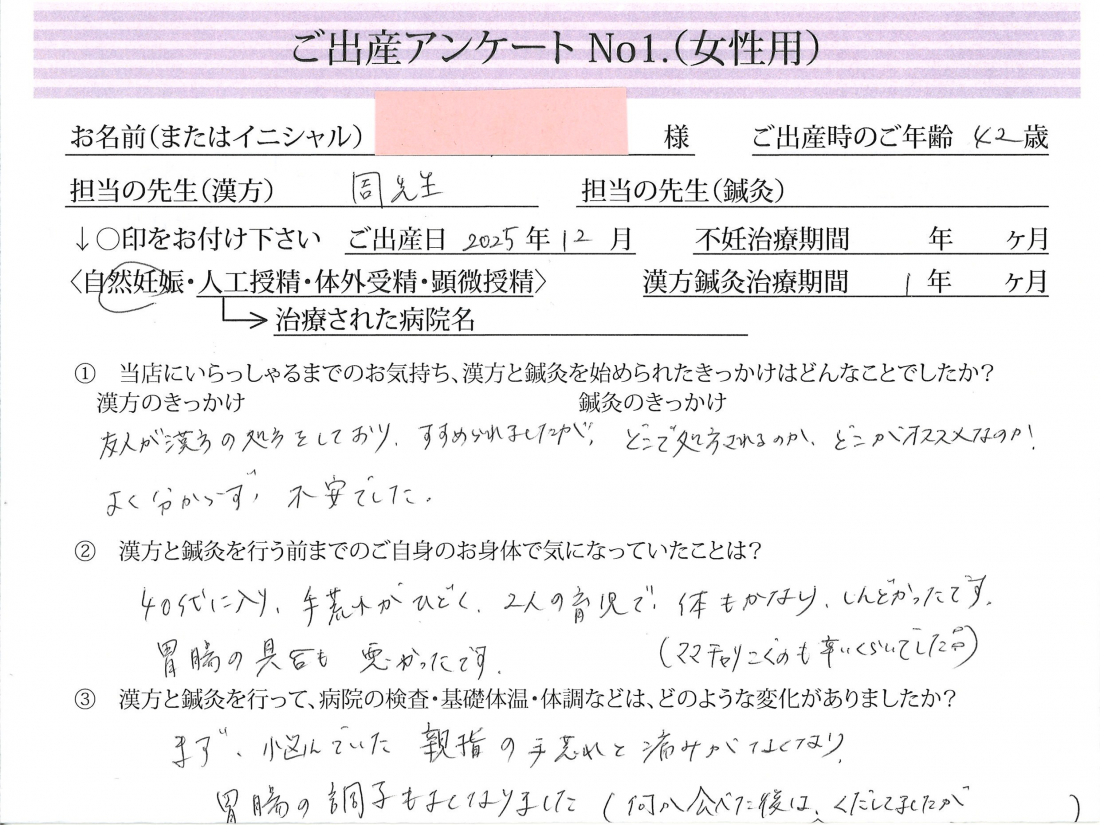 ご出産アンケート No1.（女性用）
お名前（またはイニシャル） 様 ご出産時のご年齢 42歳
担当の先生（漢方） 周先生 担当の先生（鍼灸）
↓○印をお付け下さい ご出産日 2025年 12月 不妊治療期間 年 ヶ月
〈自然妊娠・人工授精・体外受精・顕微授精〉 漢方鍼灸治療期間 1年 ヶ月
治療された病院名
① 当店にいらっしゃるまでのお気持ち、漢方と鍼灸を始められたきっかけはどんなことでしたか？
漢方のきっかけ 鍼灸のきっかけ
友人が漢方の処方をしており、すすめられましたが、どこで処方されるのか、どこがオススメなのか！
よく分からず、不安でした。
② 漢方と鍼灸を行う前までのご自身のお身体で気になっていたことは？
40代に入り、手荒れがひどく、2人の育児で、体もかなり、しんどかったです。
胃腸の具合も悪かったです。（ママチャリこぐのも辛いくらいでした）
③ 漢方と鍼灸を行って、病院の検査・基礎体温・体調などは、どのような変化がありましたか？
まず、悩んでいた親指の手荒れと痛みがなくなり、
胃腸の調子もよくなりました（何か食べた後は、くだしてましたが ）